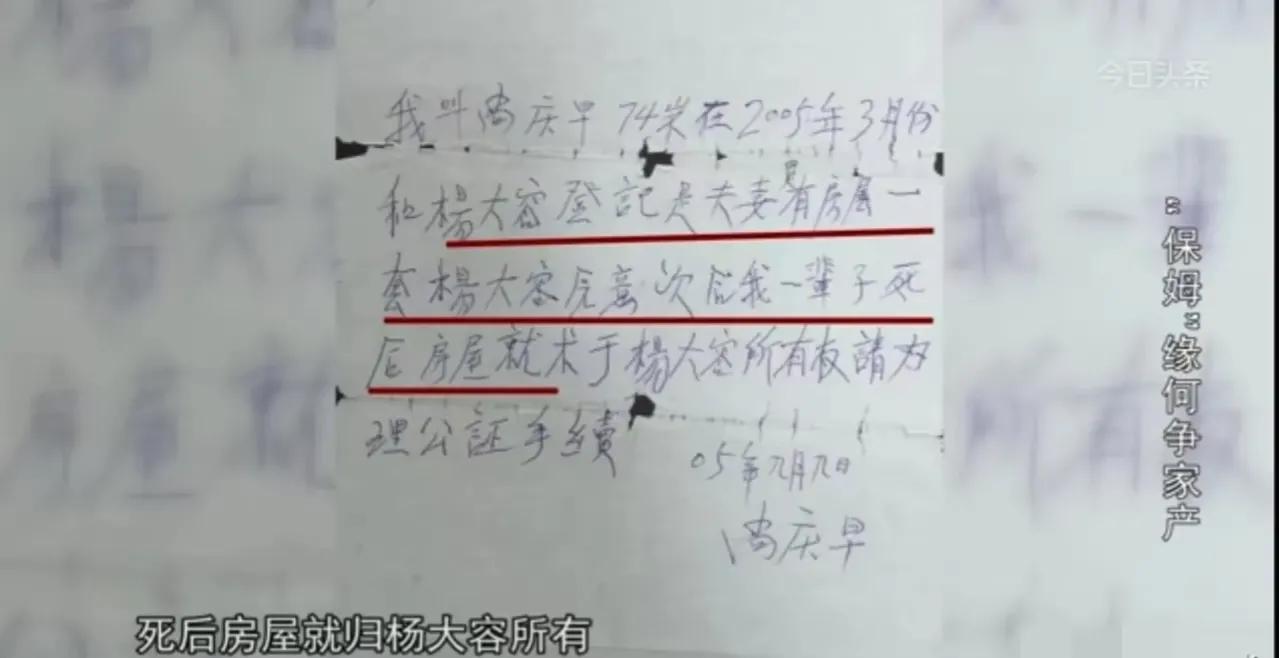 今日头条
我叫 庆早 74岁在2005年3月份
和楊大容登記是夫妻有房屋一
套楊大容 次后我一輩子死
后房屋就术于楊大容所有权請力
理公証手續
05年九月九日
庆早
"保姆"缘何争家产
死后房屋就归杨大容所有